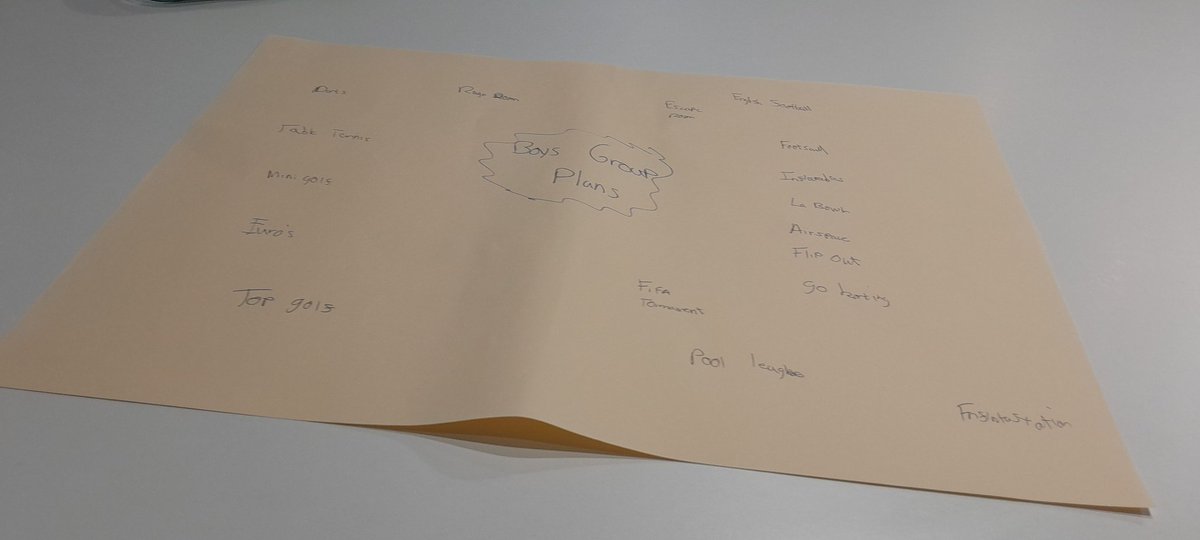 Darts
Rage Room
Escape
room
English Southall
Table Tennis
Boys Group
Plans
Footsall
Mini golf
Inflatables
La Bowl
Euro's
Airspace
Flip Out
go karting
Top golf
FiFA
Tornament
Pool league